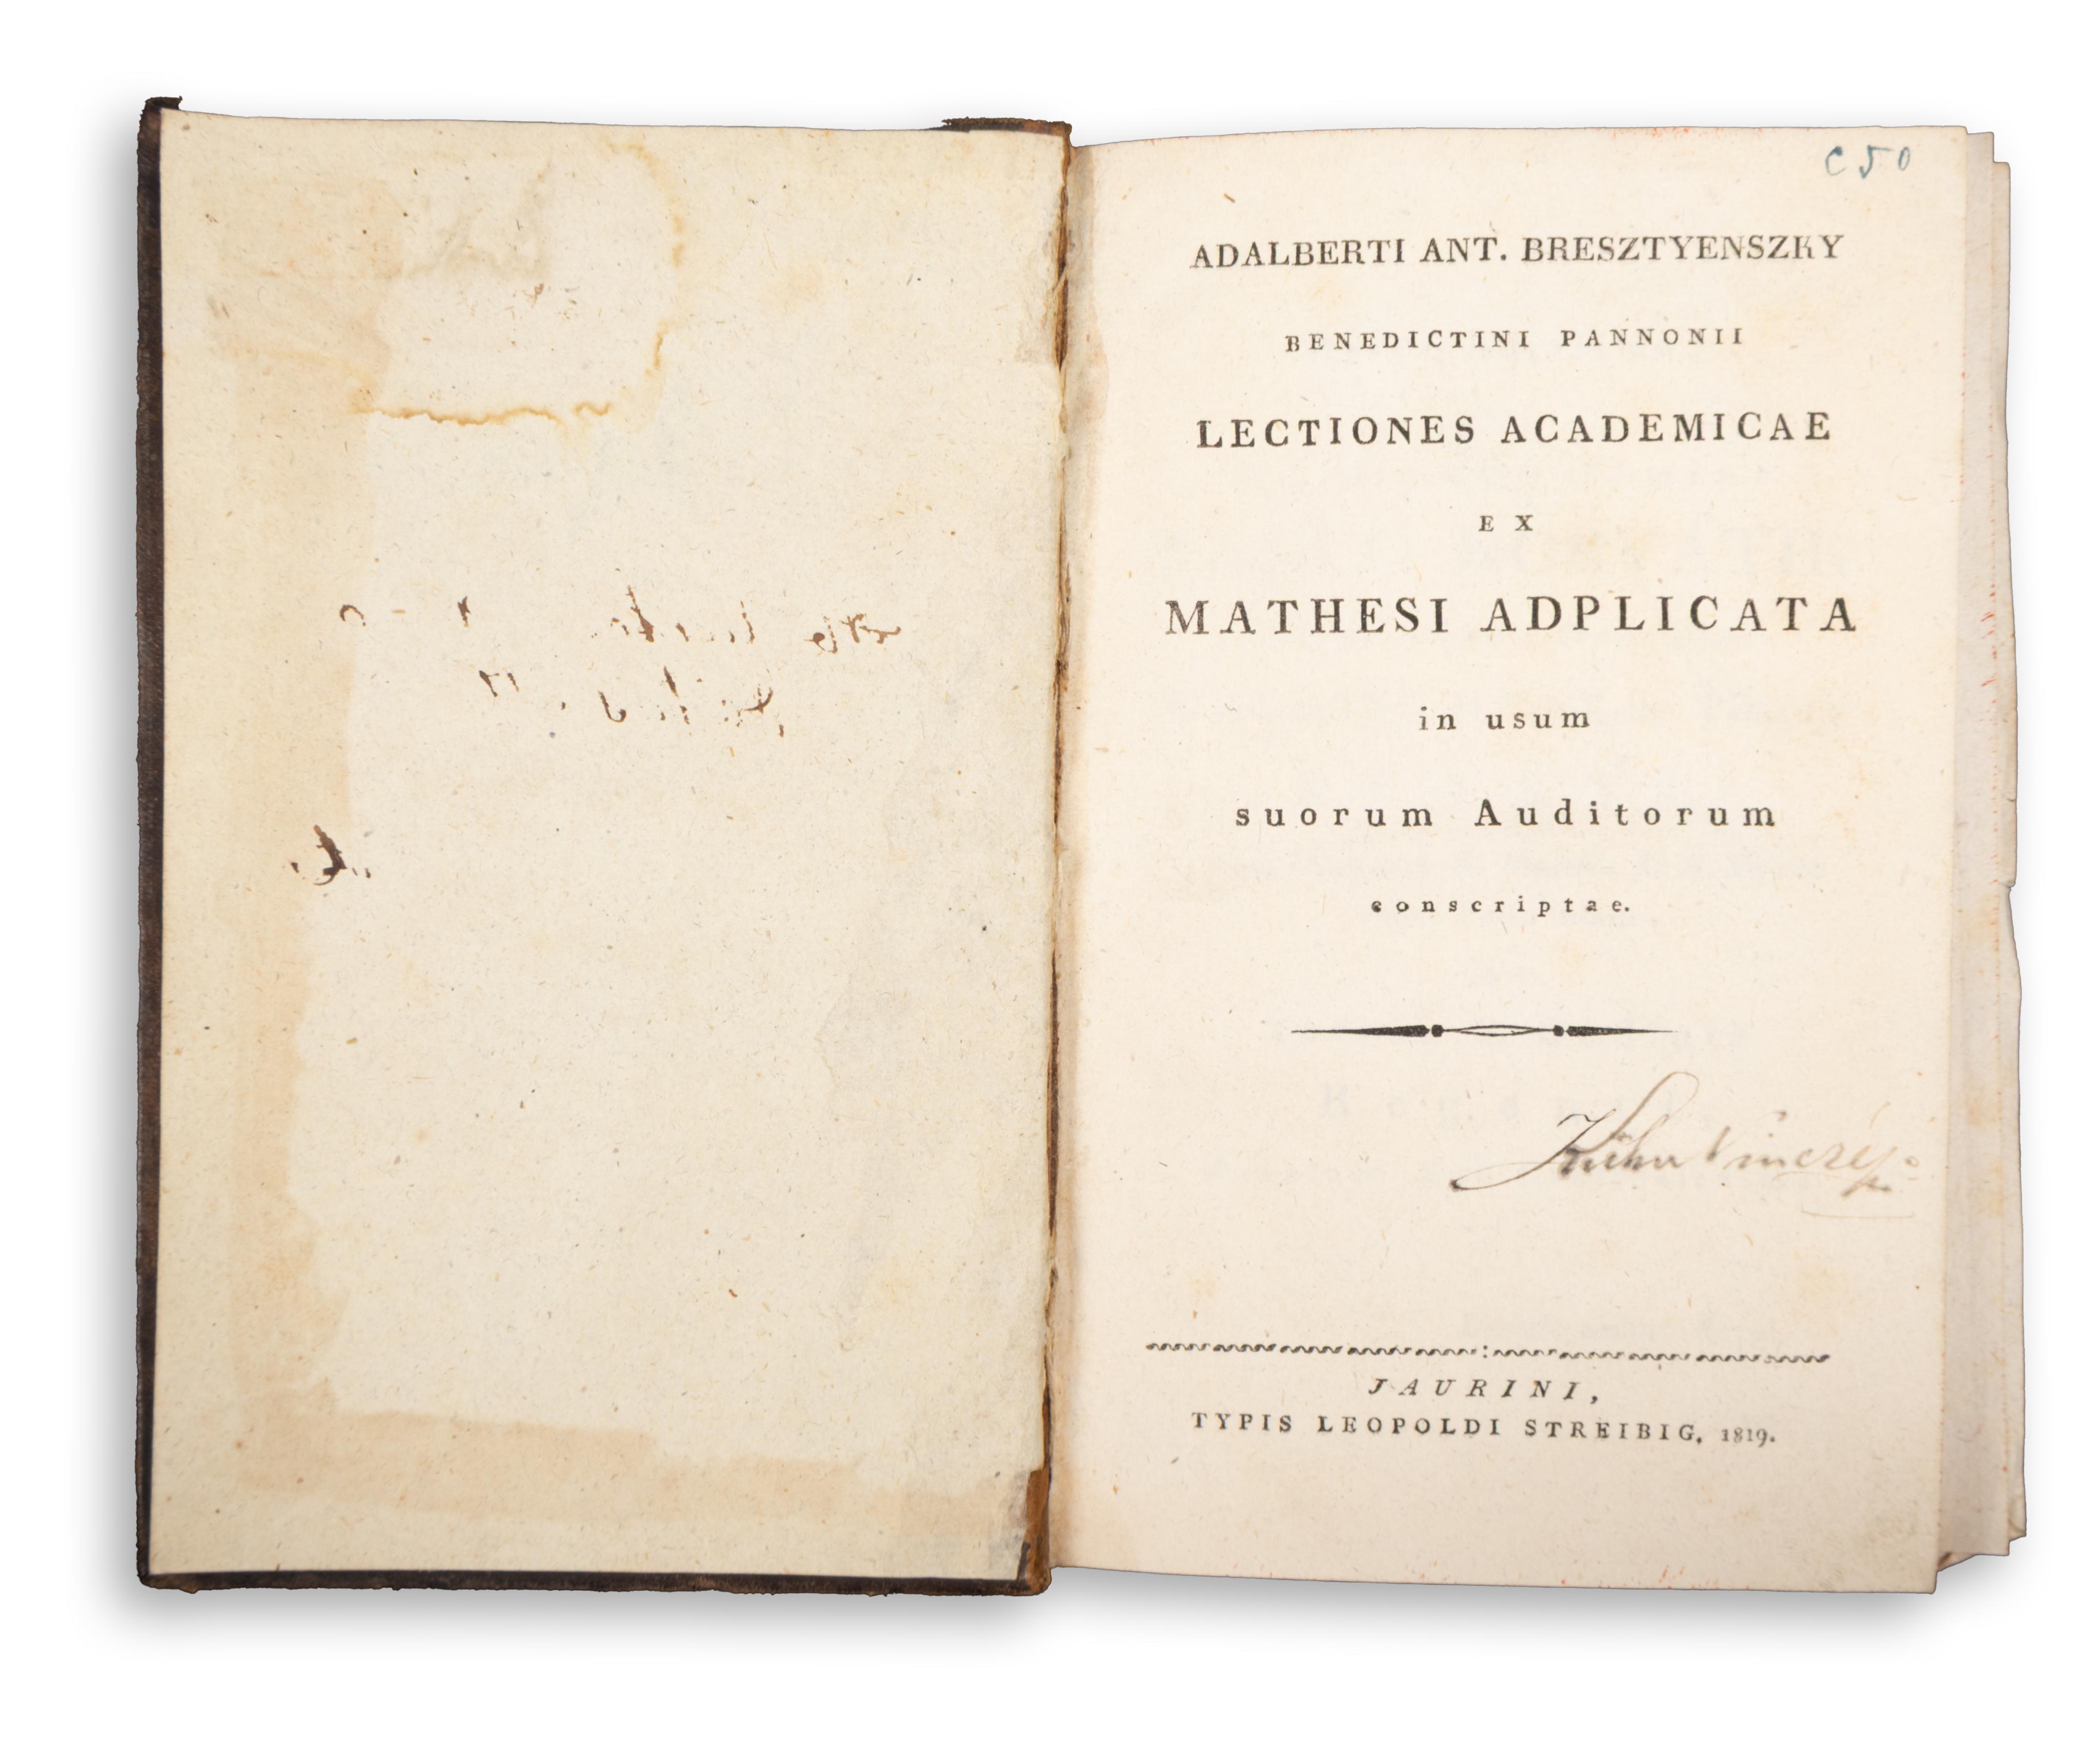 C 50
ADALBERTI ANT. BRESZTYENSZKY
BENEDICTINI PANNONII
LECTIONES ACADEMICAE
EX
MATHESI ADPLICATA
in usum
suorum Auditorum
conscriptae.
JAURINI,
TYPIS LEOPOLDI STREIBIG, 1819.